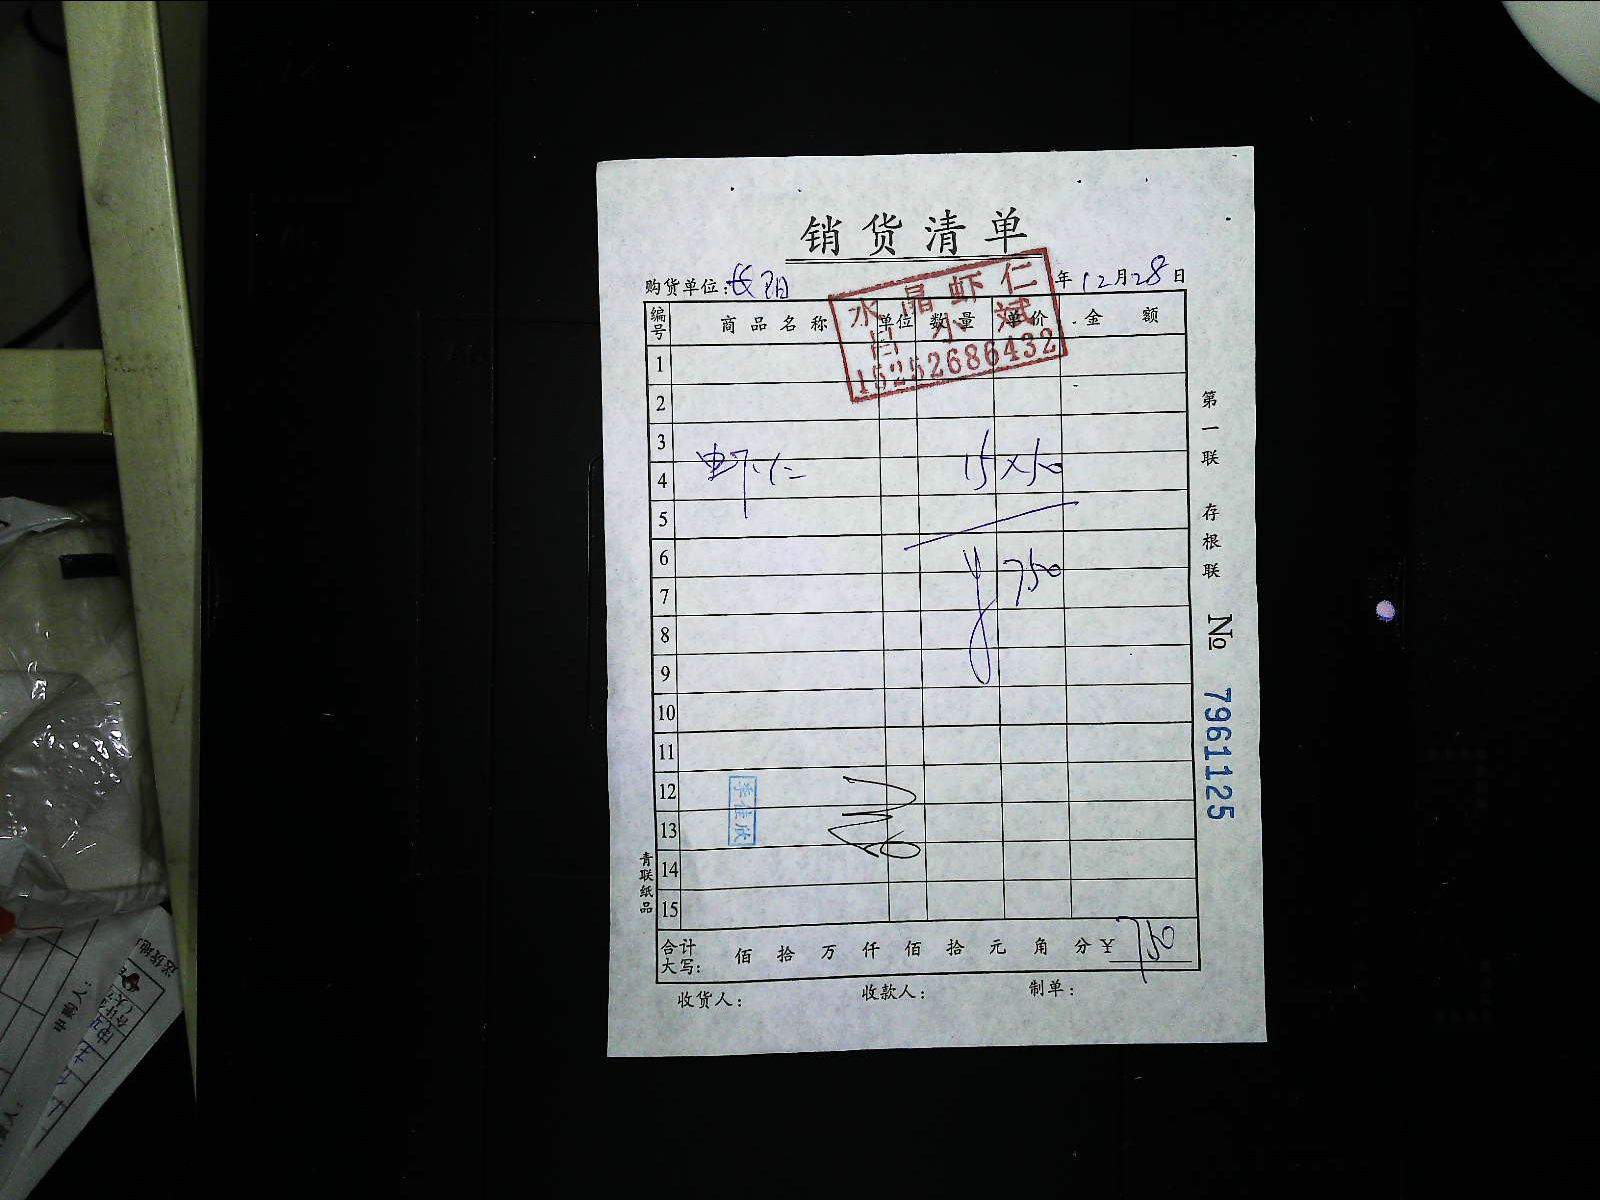 销货清单
购货单位：长阳 年12月28日
水晶虾仁
吕小斌
15252686432
编号 商品名称 单位 数量 单价 金额
1
2
3
4 虾仁 15×50
5
6
7 ¥750
8
9
10
11
12
13
14
15
李佳欣
合计大写： 佰 拾 万 仟 佰 拾 元 角 分 ¥750
收货人： 收款人： 制单：
第一联 存根联
№ 7961125
青联纸品
申购人：
送货地